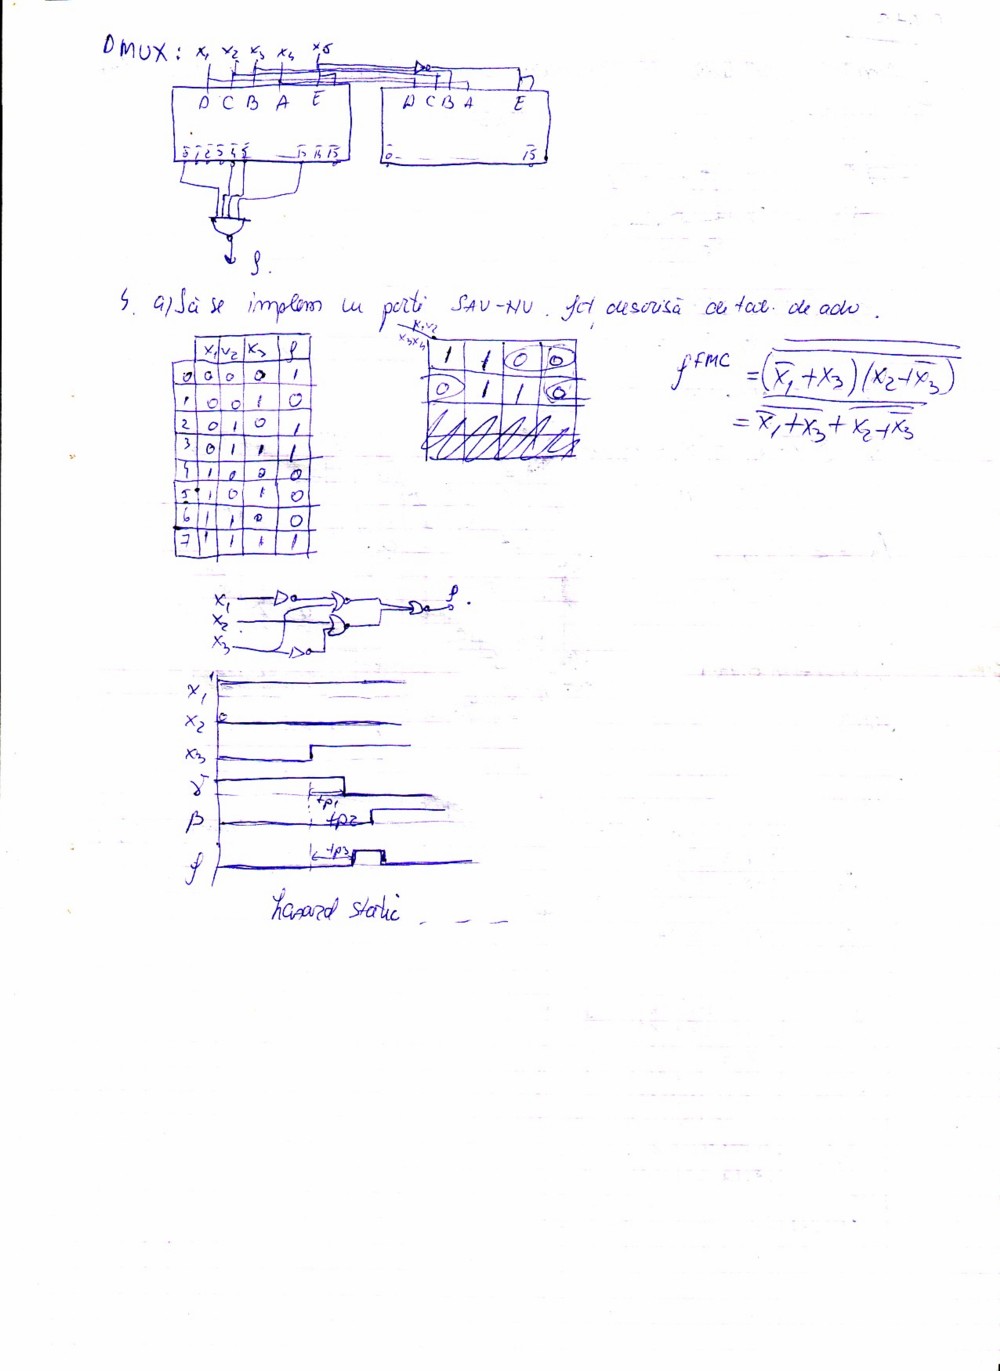 DMUX: x₁ x₂ x₃ x₄ x₅
D C B A E D C B A E
0 1 2 3 4 5 13 14 15 0 15
f.
a) Să se implem cu porti SAU-NU. fct descrisă de tab. de adv.
x₁x₂
x₃x₄
x₁ x₂ x₃ f
0 0 0 0 1
1 0 0 1 0
2 0 1 0 1
3 0 1 1 1
4 1 0 0 0
5 1 0 1 0
6 1 1 0 0
7 1 1 1 1
1 1 0 0
0 1 1 0
f^FMC = (x̄₁+x₃)(x₂+x̄₃)
= x̄₁+x₃ + x₂+x̄₃
x₁
x₂
x₃
f.
x₁ 1
x₂ 0
x₃
γ
tp₁
β tp2
f tp3
hasard static